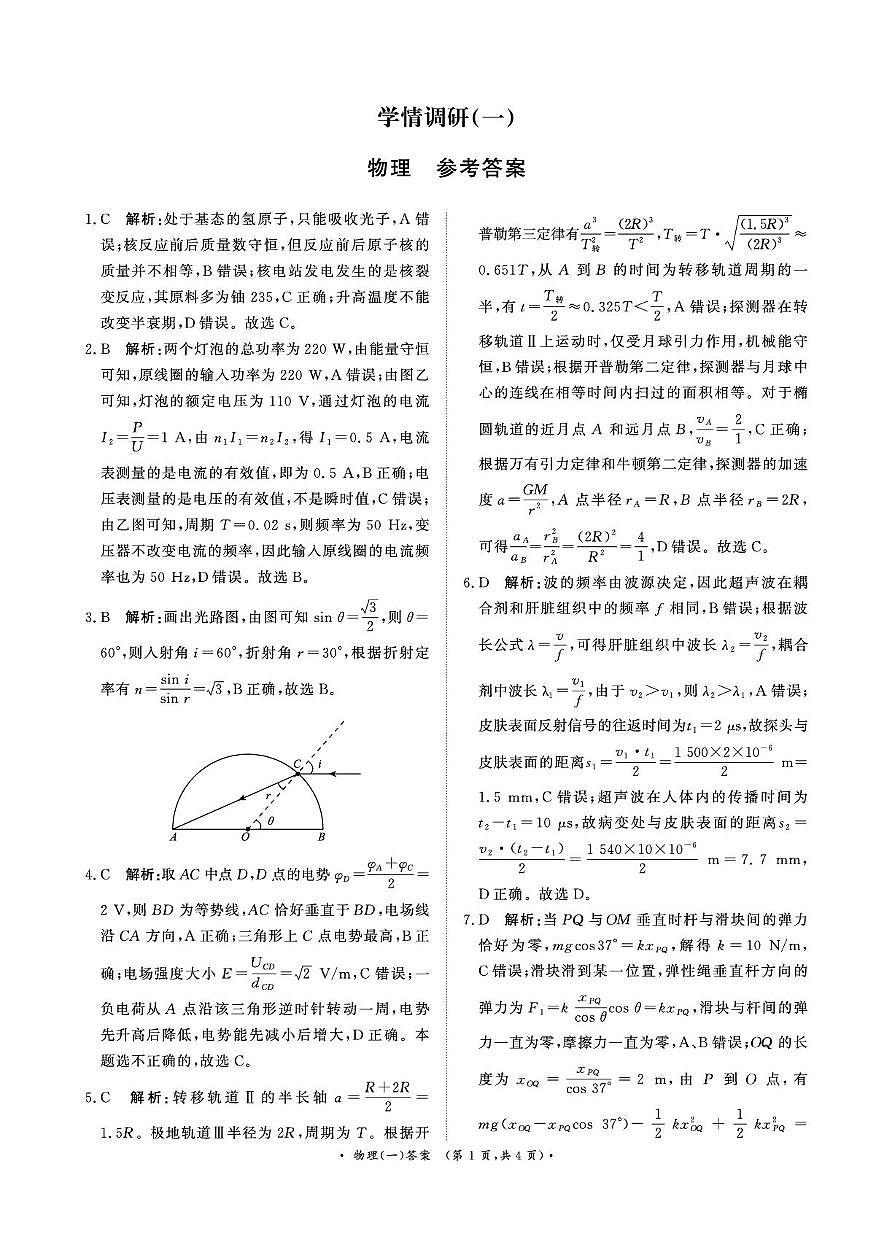 学情调研(一)
物理 参考答案
1. C 解析:处于基态的氢原子,只能吸收光子,A 错
误;核反应前后质量数守恒,但反应前后原子核的
质量并不相等,B 错误;核电站发电发生的是核裂
变反应,其原料多为铀 235,C 正确;升高温度不能
改变半衰期,D 错误。故选 C。
2. B 解析:两个灯泡的总功率为 220 W,由能量守恒
可知,原线圈的输入功率为 220 W,A 错误;由图乙
可知,灯泡的额定电压为 110 V,通过灯泡的电流
I₂=P/U=1 A,由 n₁I₁=n₂I₂,得 I₁=0.5 A,电流
表测量的是电流的有效值,即为 0.5 A,B 正确;电
压表测量的是电压的有效值,不是瞬时值,C 错误;
由乙图可知,周期 T=0.02 s,则频率为 50 Hz,变
压器不改变电流的频率,因此输入原线圈的电流频
率也为 50 Hz,D 错误。故选 B。
3. B 解析:画出光路图,由图可知 sin θ=√3/2,则 θ=
60°,则入射角 i=60°,折射角 r=30°,根据折射定
率有 n=sin i/sin r=√3,B 正确,故选 B。
C i
r
θ
A O B
4. C 解析:取 AC 中点 D,D 点的电势 φ_D=(φ_A+φ_C)/2=
2 V,则 BD 为等势线,AC 恰好垂直于 BD,电场线
沿 CA 方向,A 正确;三角形上 C 点电势最高,B 正
确;电场强度大小 E=U_CD/d_CD=√2 V/m,C 错误;一
负电荷从 A 点沿该三角形逆时针转动一周,电势
先升高后降低,电势能先减小后增大,D 正确。本
题选不正确的,故选 C。
5. C 解析:转移轨道Ⅱ的半长轴 a=(R+2R)/2=
1.5R。极地轨道Ⅲ半径为 2R,周期为 T。根据开
普勒第三定律有 a³/T转²=(2R)³/T²,T转=T·√((1.5R)³/(2R)³)≈
0.651T,从 A 到 B 的时间为转移轨道周期的一
半,有 t=T转/2≈0.325T<T/2,A 错误;探测器在转
移轨道Ⅱ上运动时,仅受月球引力作用,机械能守
恒,B 错误;根据开普勒第二定律,探测器与月球中
心的连线在相等时间内扫过的面积相等。对于椭
圆轨道的近月点 A 和远月点 B,v_A/v_B=2/1,C 正确;
根据万有引力定律和牛顿第二定律,探测器的加速
度 a=GM/r²,A 点半径 r_A=R,B 点半径 r_B=2R,
可得 a_A/a_B=r_B²/r_A²=(2R)²/R²=4/1,D 错误。故选 C。
6. D 解析:波的频率由波源决定,因此超声波在耦
合剂和肝脏组织中的频率 f 相同,B 错误;根据波
长公式 λ=v/f,可得肝脏组织中波长 λ₂=v₂/f,耦合
剂中波长 λ₁=v₁/f,由于 v₂>v₁,则 λ₂>λ₁,A 错误;
皮肤表面反射信号的往返时间为t₁=2 μs,故探头与
皮肤表面的距离s₁=v₁·t₁/2=1 500×2×10⁻⁶/2 m=
1.5 mm,C 错误;超声波在人体内的传播时间为
t₂-t₁=10 μs,故病变处与皮肤表面的距离s₂=
v₂·(t₂-t₁)/2=1 540×10×10⁻⁶/2 m=7.7 mm,
D 正确。故选 D。
7. D 解析:当 PQ 与OM 垂直时杆与滑块间的弹力
恰好为零,mgcos37°=kx_PQ,解得 k=10 N/m,
C 错误;滑块滑到某一位置,弹性绳垂直杆方向的
弹力为 F₁=k x_PQ/cos θ cos θ=kx_PQ,滑块与杆间的弹
力一直为零,摩擦力一直为零,A、B 错误;OQ 的长
度为 x_OQ=x_PQ/cos 37°=2 m,由 P 到 O 点,有
mg(x_OQ-x_PQcos 37°)-1/2 kx_OQ²+1/2 kx_PQ²=
· 物理(一)答案 (第 1 页,共 4 页) ·